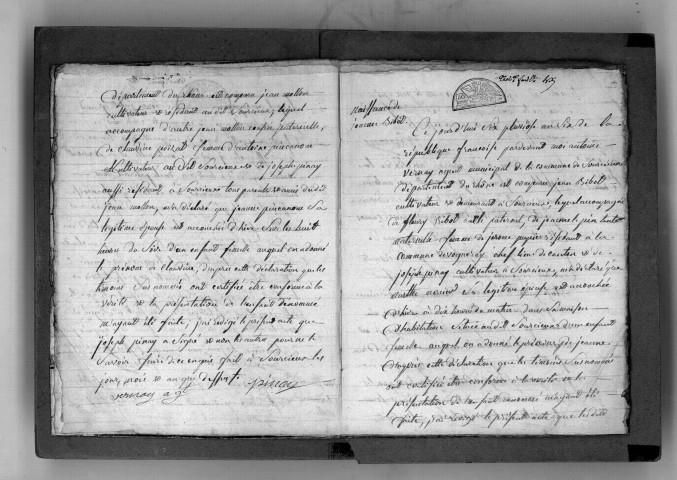 département du rhône est comparu jean mollon
cultivateur et résidant audit Sourcieux, lequel
accompagné d'autre jean mollon cousin paternelle,
de claudine pizat femme d'antoine pincanon
cultivateur audit Sourcieux et de joseph pinay
aussi résidant à Sourcieux tous parents et amis dudit
jean mollon, m'a déclaré que jeanne pincanon sa
légitime épouse est accouchée d'hier sur les huit
heures du Soir d'un enfant femelle auquel on a donné
le prénom de claudine, d'après cette déclaration que les
témoins Susnommés ont certifiée être conforme à la
vérité et la présentation de l'enfant dénommé
m'ayant été faite, j'ai rédigé le présent acte que
joseph pinay a Signé et non les autres pour ne le
Savoir faire de ce enquis fait à Sourcieux les
jour, mois et an que dessus.
pinay
vernay agt
45
naissance de
jeanne Bibot
Ce jourd'hui Six pluviose an Six de la
république françoise pardevant moi antoine
vernay agent municipal de la commune de Sourcieux
département du rhône est comparu jean Bibot
cultivateur et demeurant à Sourcieux, lequel accompagné
de fleury Bibot paternel de jeanne
maternelle femme de résidant à la
commune de chef lieu de canton et de
joseph pinay cultivateur à Sourcieux, m'a déclaré que
Sa légitime épouse est accouchée
d'hier à dix heures du matin dans Sa maison
d'habitation Située audit Sourcieux d'un enfant
femelle auquel on a donné le prénom de jeanne
d'après cette déclaration que les témoins Susnommés
ont certifiée être conforme à la vérité et la
présentation de l'enfant dénommé m'ayant été
faite, j'ai rédigé le présent acte que les dits